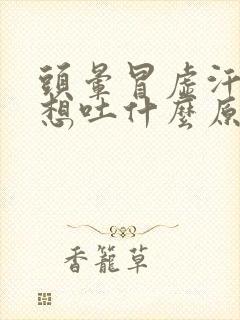 頭暈冒虛汗
想吐什麼原
香籠草